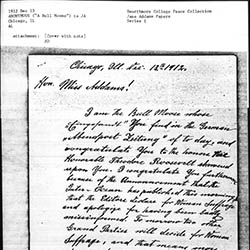 1912 Dec 13
ANONYMOUS ("A Bull Moose") to JA
Chicago, IL
AL
Swarthmore College Peace Collection
Jane Addams Papers
Series 1
attachment: [Cover with note]
Chicago, Ill. Dec. 13th 1912.
Hon. Miss Addams!
I am the Bull Moose whose
You find in the German
Abendpost Zeitung of to day, and
congratulate You to the honors the
Honorable Theodore Roosevelt showed
upon You. I congratulate You further
because of the Announcement that the
Inter-Ocean has published this morning
that the Editors declare for Women Suffrage
and apologize for having been
misinformed to morrow the other
Grand Parties will decide for Women
Suffrage, and that means